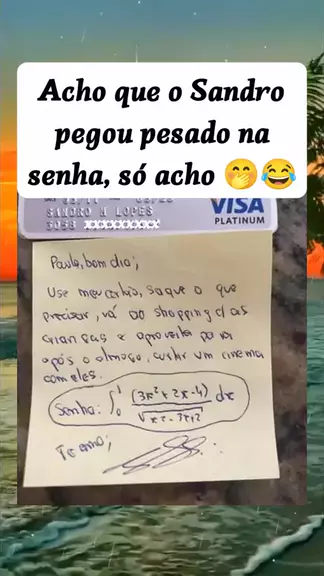 Acho que o Sandro
pegou pesado na
senha, só acho 🤭😂
SANDRO M LOPES
VISA
PLATINUM
Paula, bom dia;
Use meu cartão, saque o que
precisar, vá ao shopping c/ as
crianças e aproveita para
após o almoço, curtir um cinema
com eles.
Senha: ∫₀¹ (3x²+2x-4)/√(x²-3x+2) dx
Te amo;